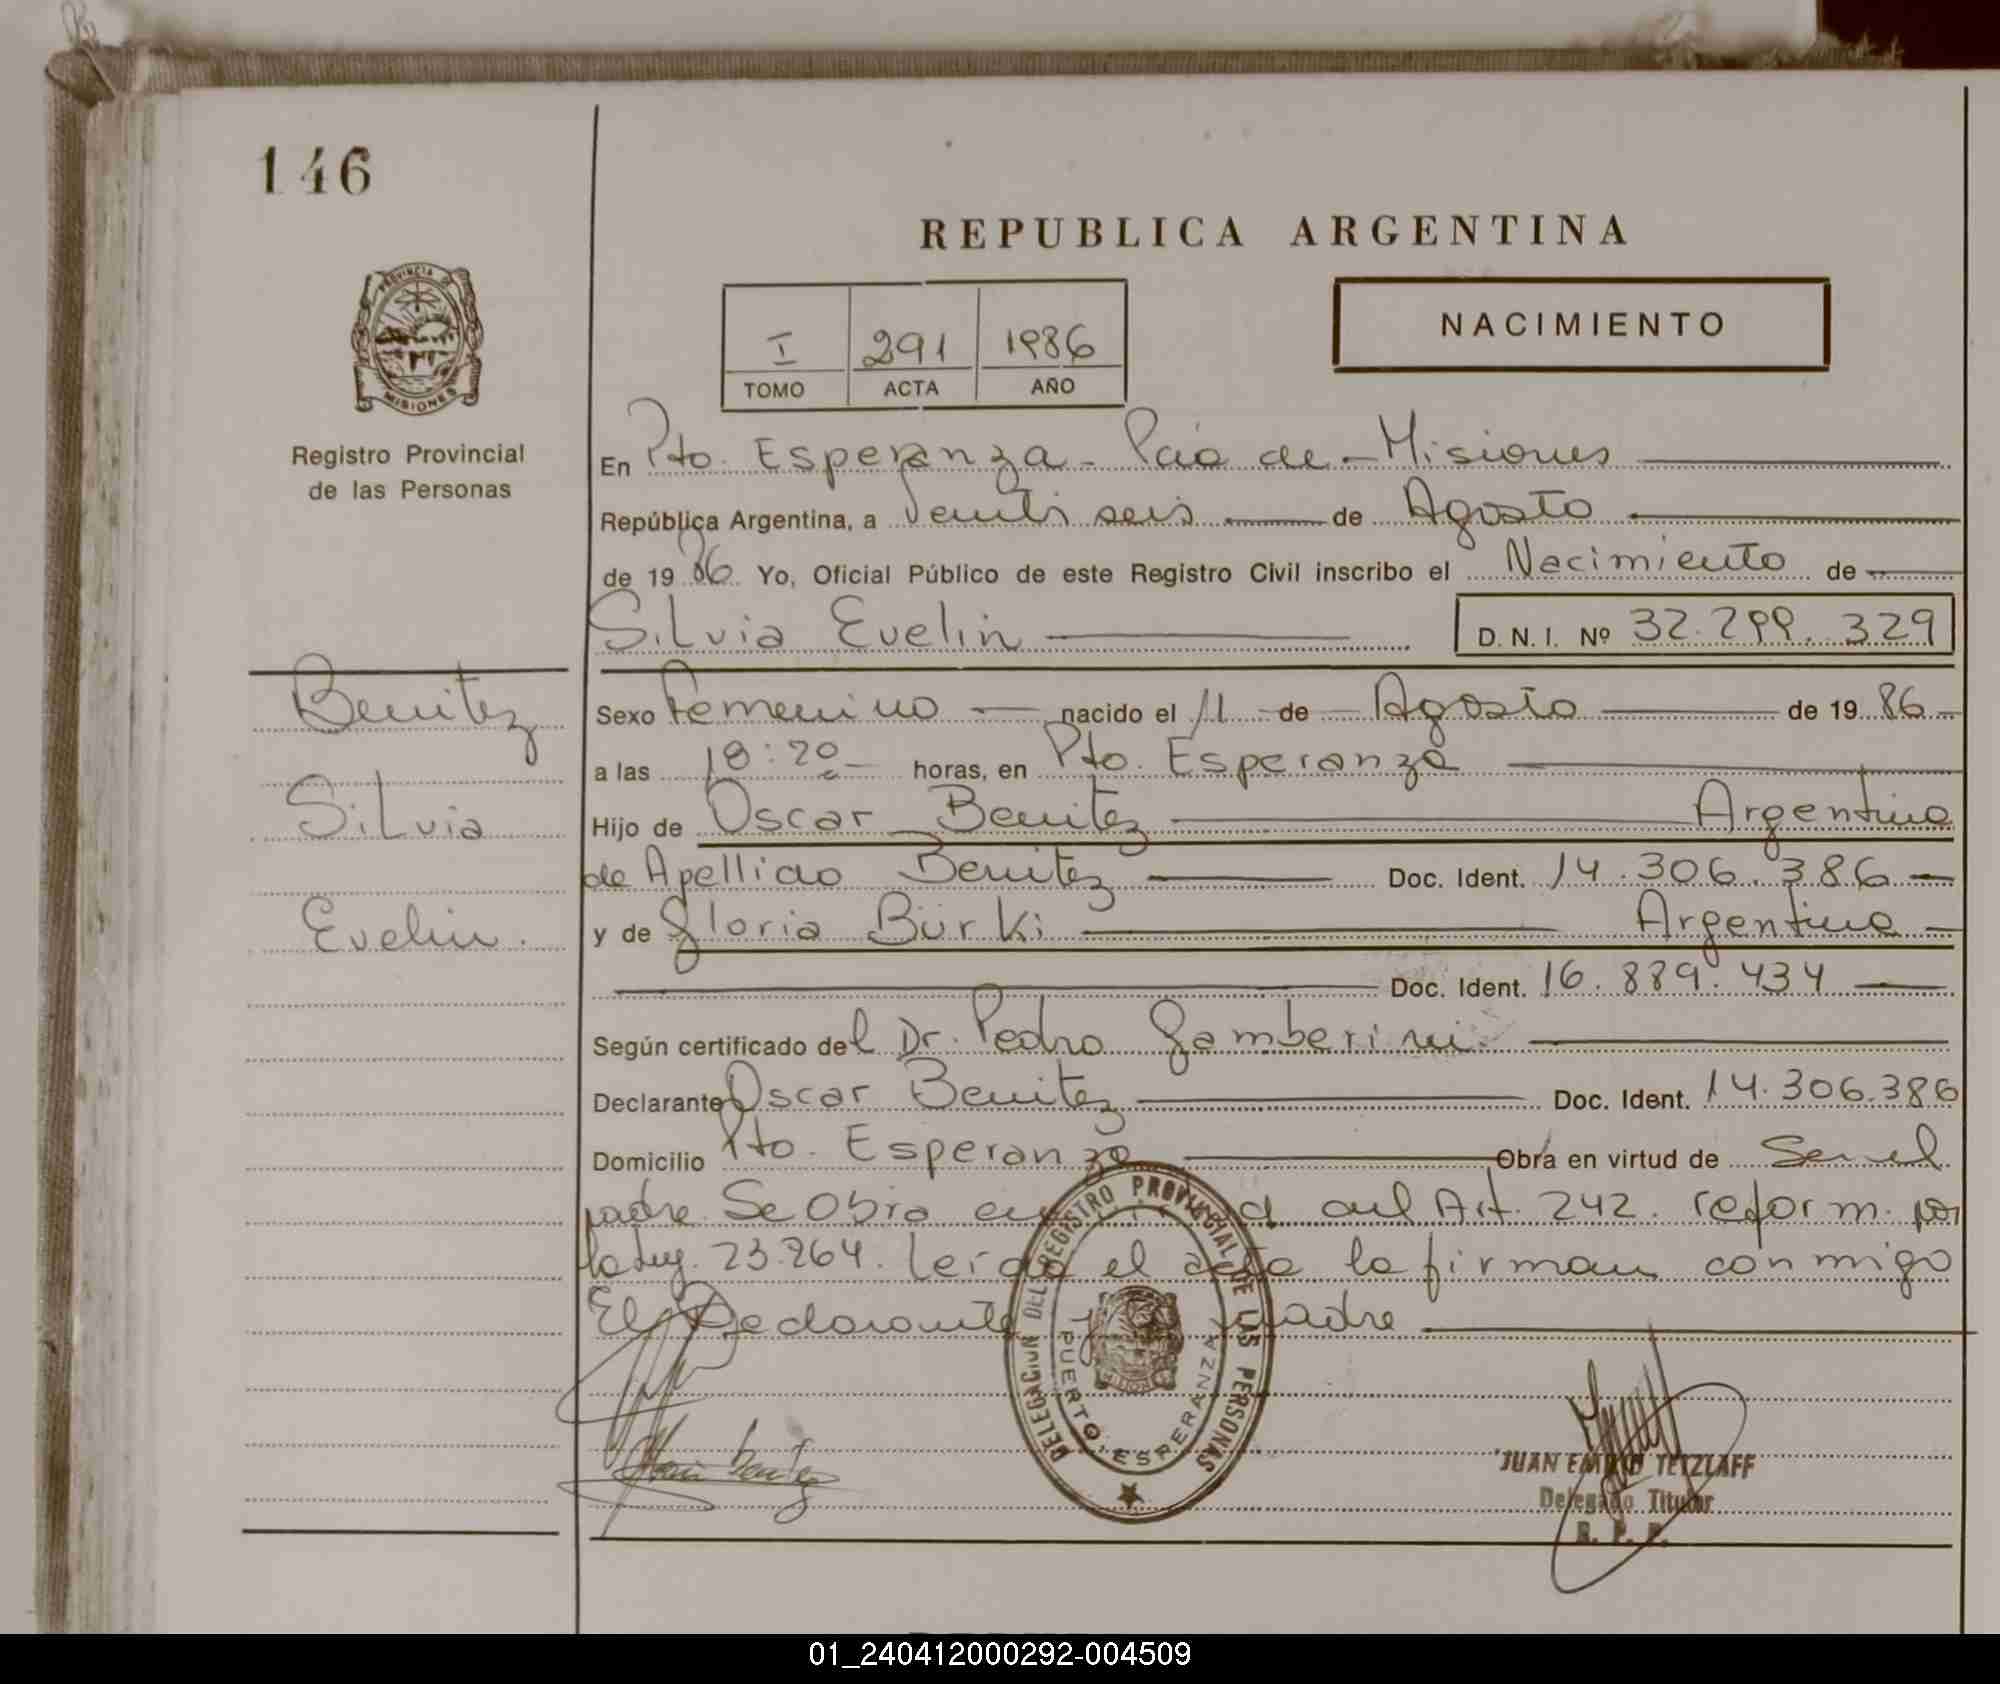 146
REPUBLICA ARGENTINA
PROVINCIA DE
MISIONES
Registro Provincial
de las Personas
I 291 1986
TOMO ACTA AÑO
NACIMIENTO
En Pto. Esperanza - Pcia de - Misiones
República Argentina, a Veinti seis de Agosto
de 1986 Yo, Oficial Público de este Registro Civil inscribo el Nacimiento de
Silvia Evelin D.N.I. Nº 32.299.329
Benitez
Silvia
Evelin.
Sexo Femenino nacido el 11 de Agosto de 1986
a las 18:20 horas, en Pto. Esperanza
Hijo de Oscar Benitez Argentino
de Apellido Benitez Doc. Ident. 14.306.386
y de Gloria Bürki Argentina
Doc. Ident. 16.889.434
Según certificado del Dr. Pedro Gamberini
Declarante Oscar Benitez Doc. Ident. 14.306.386
Domicilio Pto. Esperanza Obra en virtud de Ser el
padre. Se Obra en del Art. 242. reform. por
la Ley. 23.264. Leida el acta la firman conmigo
El Declarante y la madre
DELEGACION DEL REGISTRO PROVINCIAL DE LAS PERSONAS
PUERTO ESPERANZA
MISIONES
JUAN EMILIO TETZLAFF
Delegado Titular
R. P. P.
01_240412000292-004509